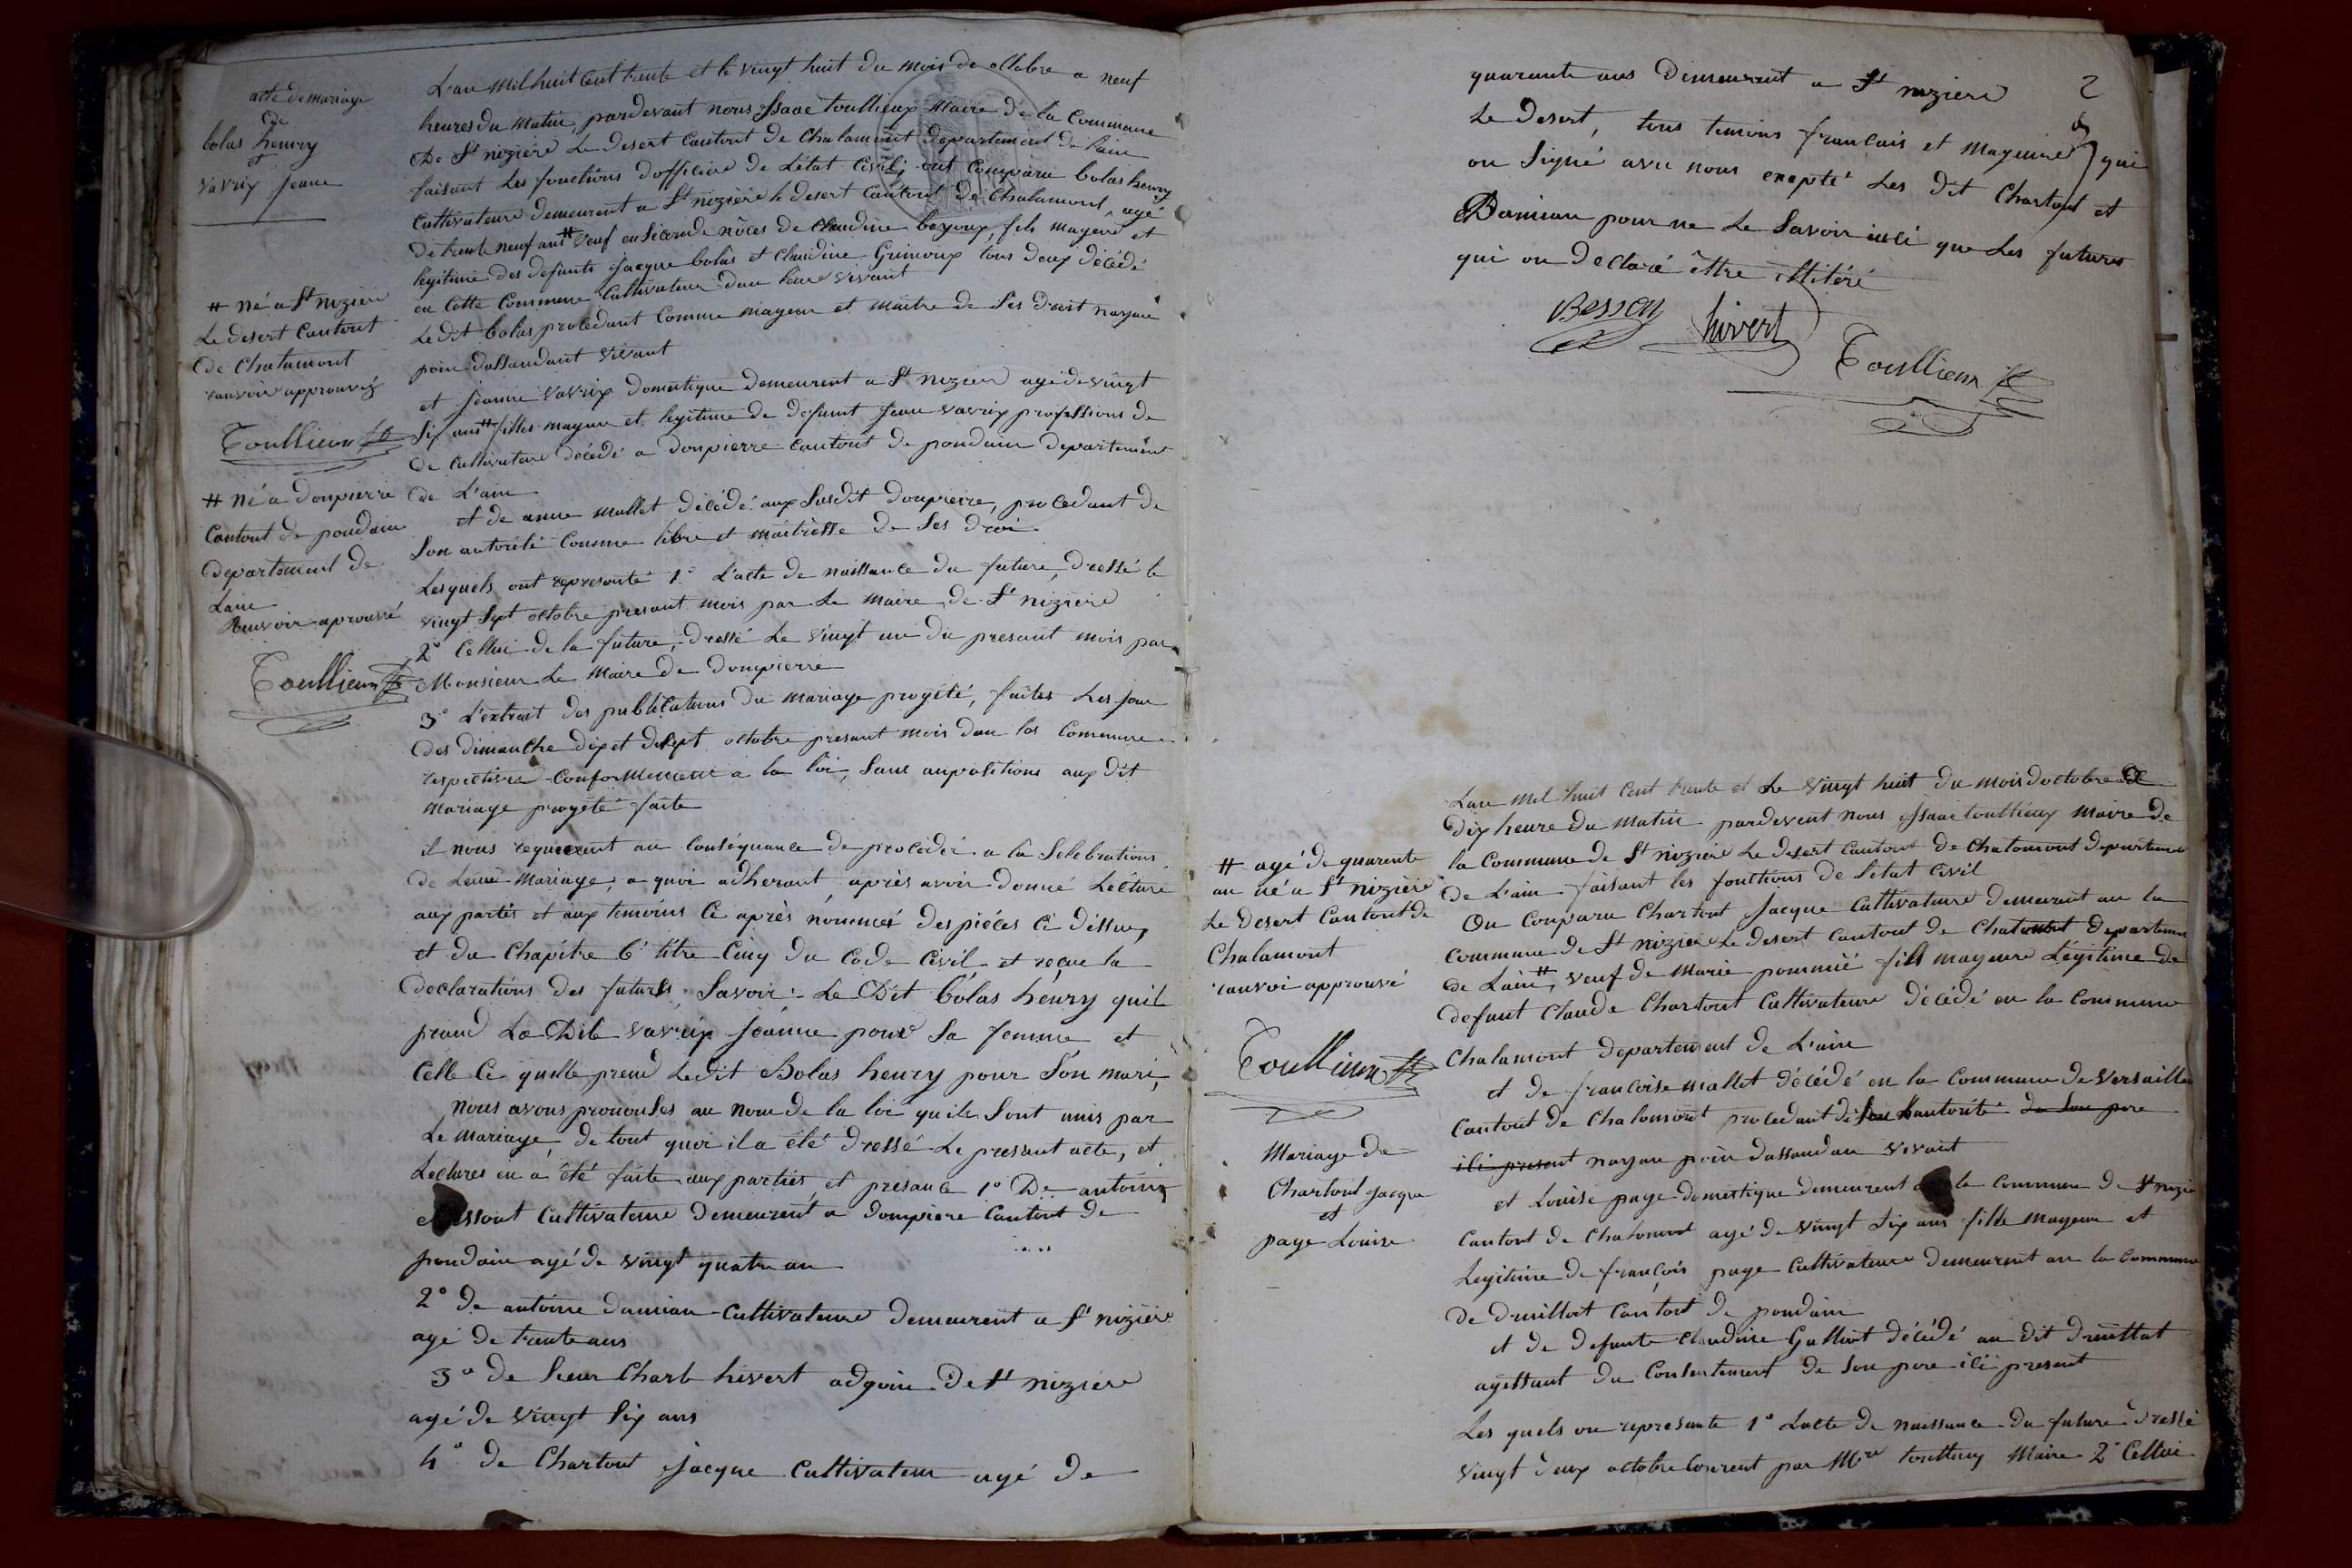 acte de mariage
de
bolas henry
et
vavrix jeanne
L'an mil huit cent trente et le vingt huit du mois de octobre a neuf
heures du matin, pardevant nous Isaac toullieux Maire de la Commune
De St nizière Le desert cantont de Chalamont departement de L'ain
faisant les fonctions d'officier de L'état Civil, ont comparu bolas henry
Cultivateure demeurent a St nizière le desert Cantont de Chalamont, agé
de trente neuf ans # veuf en Seconde nôces de Claudine bayoux, fils mayeur et
legitime des defunts Jacque bolas et Claudine Grimoux tous deux décédé
en Cette Commune Cultivateur dan leur vivant
Le dit bolas procédant Comme mayeur et maitre de Ses droist nayant
poin dassandant vivant
et jeanne vavrix domestique demeurent a St nizier agé de vingt
Six ans # filles mayeur et legitime de defunt Jean vavrix professions de
de Cultivateure décédé a donpierre cantont de pondain departement
de L'ain
et de anne mallet décédé aux Susdit donpierre, procedant de
Son autorité Comme libre et maitresse de Ses droi
Lesquels ont representé 1° L'acte de naissance du future, dressé le
vingt Sept octobre presant mois par Le maire de St nizière
2° Cellui de la future, dressé Le vingt un du presant mois par
Monsieur Le Maire de dompierre
3° L'extrait des publications du mariage progété, faites Les jour
des dimanche dix et disept octobre presant mois dan les Commune
respective Conformement a la loi, Sans auposition aux dit
mariage progété faite
il nous requerent au conséquance de procéder a la Selebrations
de Leur Mariage, a quoi adherant après avoir donné Lecture
aux partis et aux temoins Ci après nommeé des piéces Ci déssus,
et du Chapitre 6° titre Cinq du Code Civil et reçue la
declarations des futurs Savoir: Le Dit bolas henry quil
prand La Dite vavrix jeanne pour Sa femme et
Celle Ci quelle prend Le dit Bolas henry pour Son mari,
nous avons pronouses au nom de la loi quils Sont unis par
Le mariage, de tout quoi il a été dressé Le presant acte, et
Lectures en a été faite aux parties, et presance 1° De antoine
Cultivateure demeurent a dompiere Cantont de
pondain agé de vingt quatre an
2° De antoine damian Cultivateure demeurent a St nizière
agé de trente ans
3° de Sieur Charle hivert adgoin de St niziere
agé de vingt Six ans
4° de Chartout Jacque Cultivateur agé de
# né a St nizier
Le desert Cantont
de Chalamont
ranvoir approuvez
Toullieux
# né a donpierre
Cantont de pondain
departement de
Lain
Ranvoir aprouvé
Toullieux
2
quarante ans demeurent a St niziere
Le desert, tous temoins francais et mayeure qui
on Signé avec nous excepté Les dit Chartout et
Damian pour ne Le Savoir insi que Les futures
qui on declaré êttre ittitéré
Besson
hivert
Toullieux
L'an mil huit cent trente et Le vingt huit du mois doctobre a
dix heure du matin pardevent nous Isaac toullieux maire de
la Commune de St nizière Le desert Cantont de Chalomont departement
de L'ain faisant les fonctions de L'état Civil
On Conparu Chartout Jacque Cultivateure demeurent au la
commune de St nizière Le desert Cantont de Chalomont departement
de Lain #, veuf de Marie pommié fils mayeure Légitime de
defunt Claude Chartout Cultivateure décédé en la Commune
Chalamont departement de L'ain
et de francoise mallet décédé en la Commune de Versailleu
Cantont de Chalomont procedant de Son hautorité de Son pere
ili present nayan poin dassandan vivant
et Louise page domestique demeurent la Commune de St nizie
Cantont de Chalomont agé de vingt Six ans fille mayeur et
Legitime de françois page Cultivateure demeurent an la Commune
de druillart Cantont de pondain
et de defunte Claudine Galliart décédé au dit druittat
agéttant du Consentement de Son pere ili present
Les quels on representé 1° L'acte de naissance du future dressé
vingt deux octobre Courent par Mre toullieux Maire 2° Cellui
# agé de quarente
an né a St nizière
Le desert Cantont de
Chalamont
ranvoi approuvé
Toullieux
Mariage de
Chartout Jacque
et
page Louise